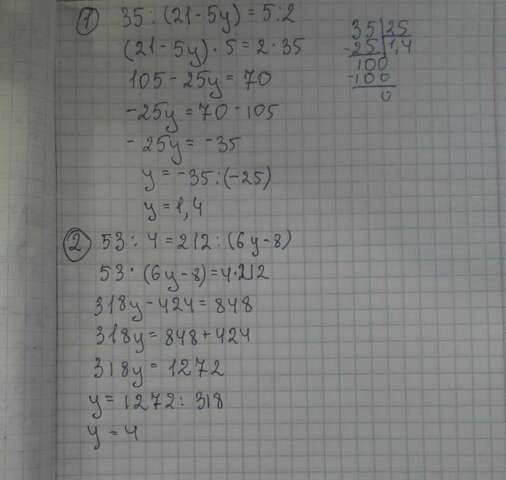 ① 35 : (21-5y) = 5:2
(21-5y)·5=2·35
105-25y=70
-25y=70-105
-25y=-35
y=-35:(-25)
y=1,4
35|25
-25|1,4
100
-100
0
② 53:4=212:(6y-8)
53·(6y-8)=4·212
318y-424=848
318y=848+424
318y=1272
y=1272:318
y=4